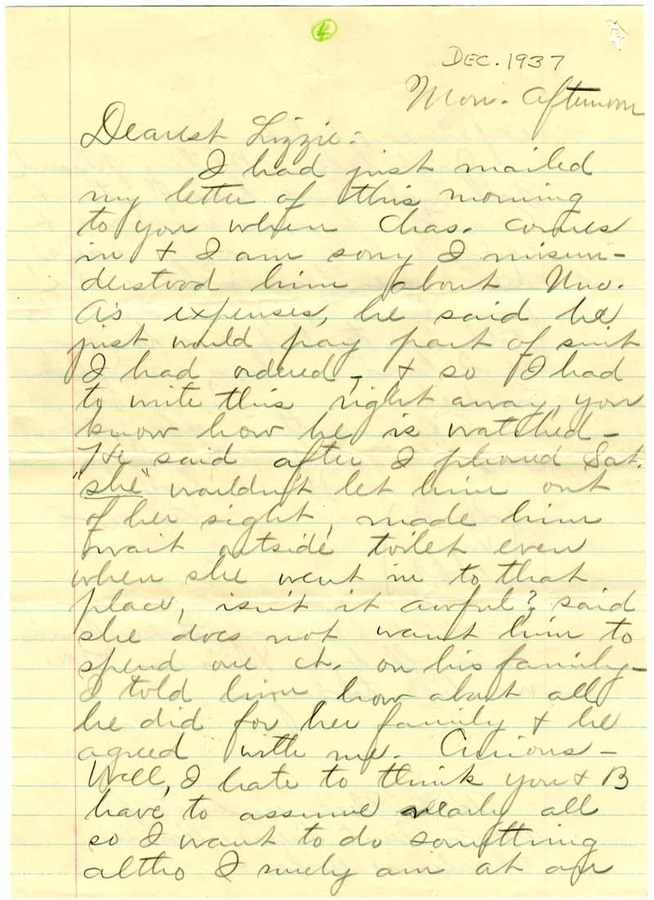 DEC. 1937
Mon. Afternoon
Dearest Lizzie:
I had just mailed
my letter of this morning
to you when Chas. comes
in + I am sorry I misun-
derstood him about
A's expenses, he said he
just would pay part of suit
I had ordered, + so I had
to write this right away, you
know how he is watched -
He said after I phoned Sat.
"she" wouldn't let him out
of her sight, made him
wait outside toilet even
when she went in to that
place, isn't it awful? said
she does not want him to
spend one ct. on his family -
I told him how about all
he did for her family + he
agreed with me. Curious -
Well, I hate to think you + B
have to assume nearly all
so I want to do something
altho I surely am at an